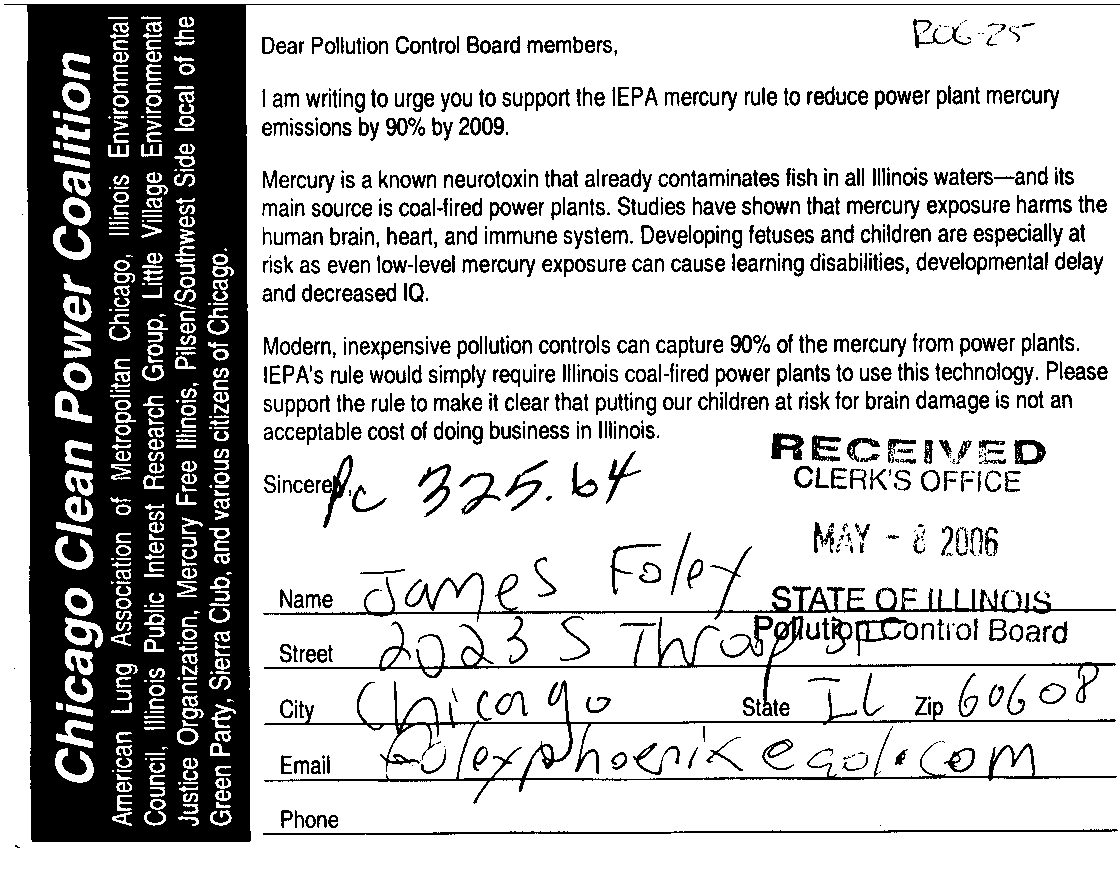 Chicago Clean Power Coalition
American Lung Association of Metropolitan Chicago, Illinois Environmental
Council, Illinois Public Interest Research Group, Little Village Environmental
Justice Organization, Mercury Free Illinois, Pilsen/Southwest Side local of the
Green Party, Sierra Club, and various citizens of Chicago.
R06-25
Dear Pollution Control Board members,
I am writing to urge you to support the IEPA mercury rule to reduce power plant mercury
emissions by 90% by 2009.
Mercury is a known neurotoxin that already contaminates fish in all Illinois waters—and its
main source is coal-fired power plants. Studies have shown that mercury exposure harms the
human brain, heart, and immune system. Developing fetuses and children are especially at
risk as even low-level mercury exposure can cause learning disabilities, developmental delay
and decreased IQ.
Modern, inexpensive pollution controls can capture 90% of the mercury from power plants.
IEPA's rule would simply require Illinois coal-fired power plants to use this technology. Please
support the rule to make it clear that putting our children at risk for brain damage is not an
acceptable cost of doing business in Illinois.
RECEIVED
CLERK'S OFFICE
MAY - 8 2006
STATE OF ILLINOIS
Pollution Control Board
Sincerely,
Pc 325.64
Name James Foley
Street 2023 S Throop ST
City Chicago State IL Zip 60608
Email
Phone